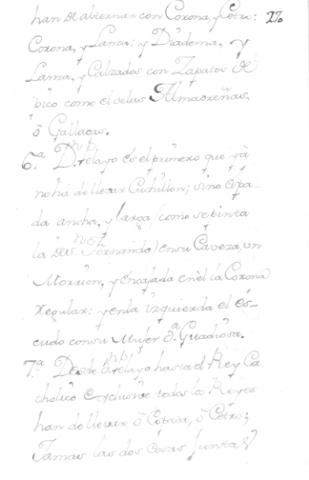 han de alternar con Corona, y Cetro:
Corona, y Lanza: y Diadema, y
Lanza, y Calzados con Zapatos de
pico como el de las Almacreñas,
ó Gallocas.
6.ª D.n Pelayo es el primero que yà
no há de llevar Cuchillon; sino espa-
da ancha, y larga/como se pinta
la de S.n Fernando/en su Caveza, un
Morrion, y encajada en él la Corona
regular: y en la izquierda el es-
cudo con su Muger D.ª Guadiosa.
7.ª Desde D.n Pelayo hasta el Rey Ca-
tholico exclusive todos los Reyes
han de llevar, ó Espada, ó Cetro;
Jamas las dos cosas juntas